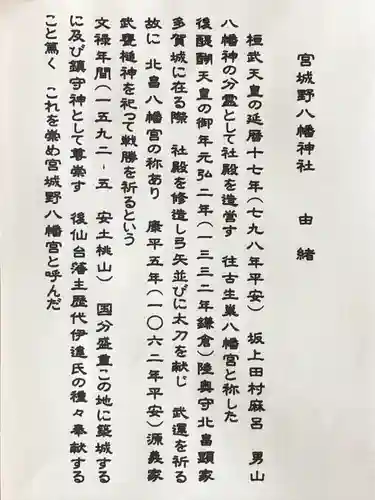 宮城野八幡神社　由緒
桓武天皇の延暦十七年(七九八年平安)　坂上田村麻呂　男山
八幡神の分霊として社殿を造営す　往古生巣八幡宮と称した
後醍醐天皇の御年元弘二年(一三三二年鎌倉)陸奥守北畠顕家
多賀城に在る際　社殿を修造し弓矢並びに太刀を献じ　武運を祈る
故に　北畠八幡宮の称あり　康平五年(一〇六二年平安)源義家
武甕槌神を祀って戦勝を祈るという
文禄年間(一五九二-五　安土桃山)　国分盛重この地に築城する
に及び鎮守神として尊崇す　後仙台藩主歴代伊達氏の種々奉献する
こと篤く　これを崇め宮城野八幡宮と呼んだ